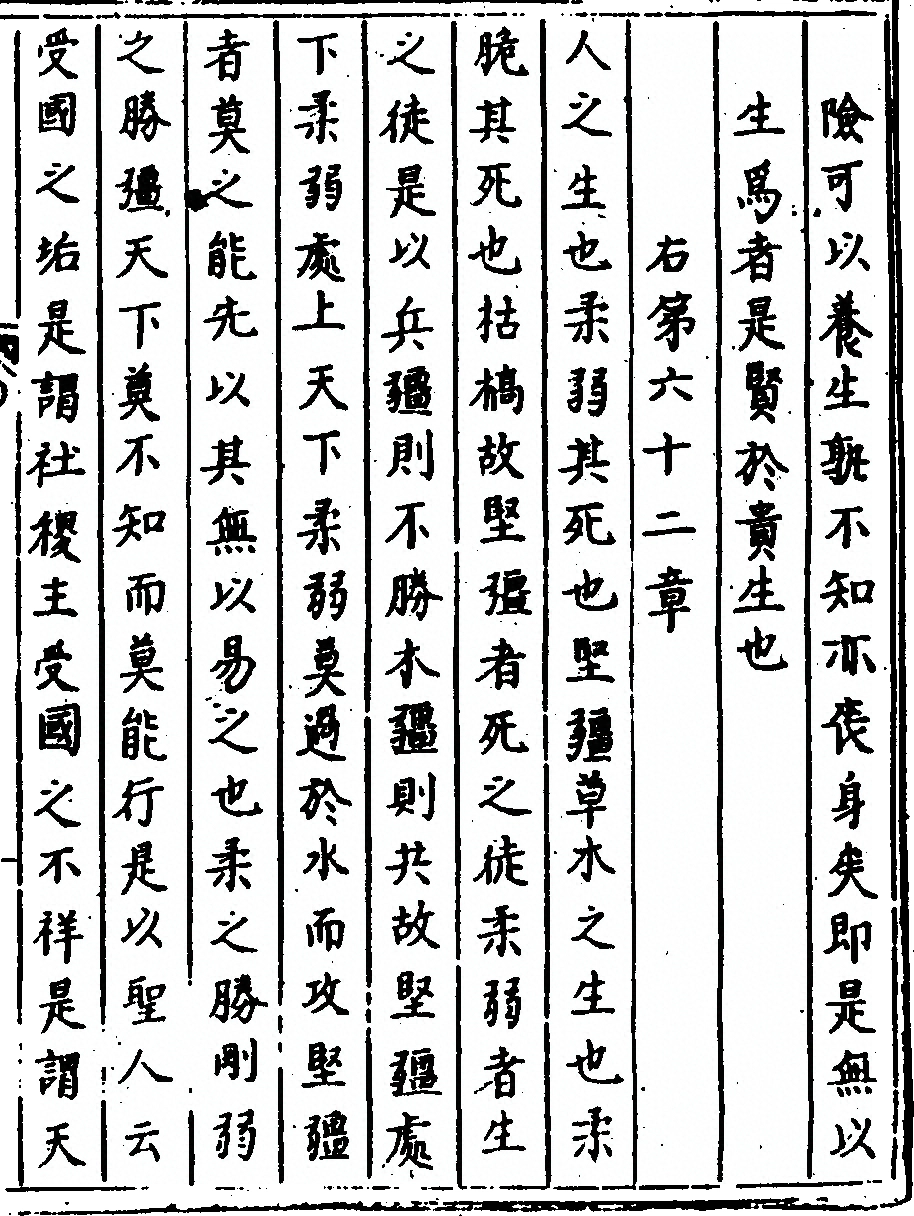 險可以養生孰不知亦喪身矣即是無以
生爲者是賢於貴生也
右第六十二章
人之生也柔弱其死也堅彊草木之生也柔
脆其死也枯槁故堅彊者死之徒柔弱者生
之徒是以兵彊則不勝木彊則共故堅彊處
下柔弱處上天下柔弱莫過於水而攻堅彊
者莫之能先以其無以易之也柔之勝剛弱
之勝彊天下莫不知而莫能行是以聖人云
受國之垢是謂社稷主受國之不祥是謂天